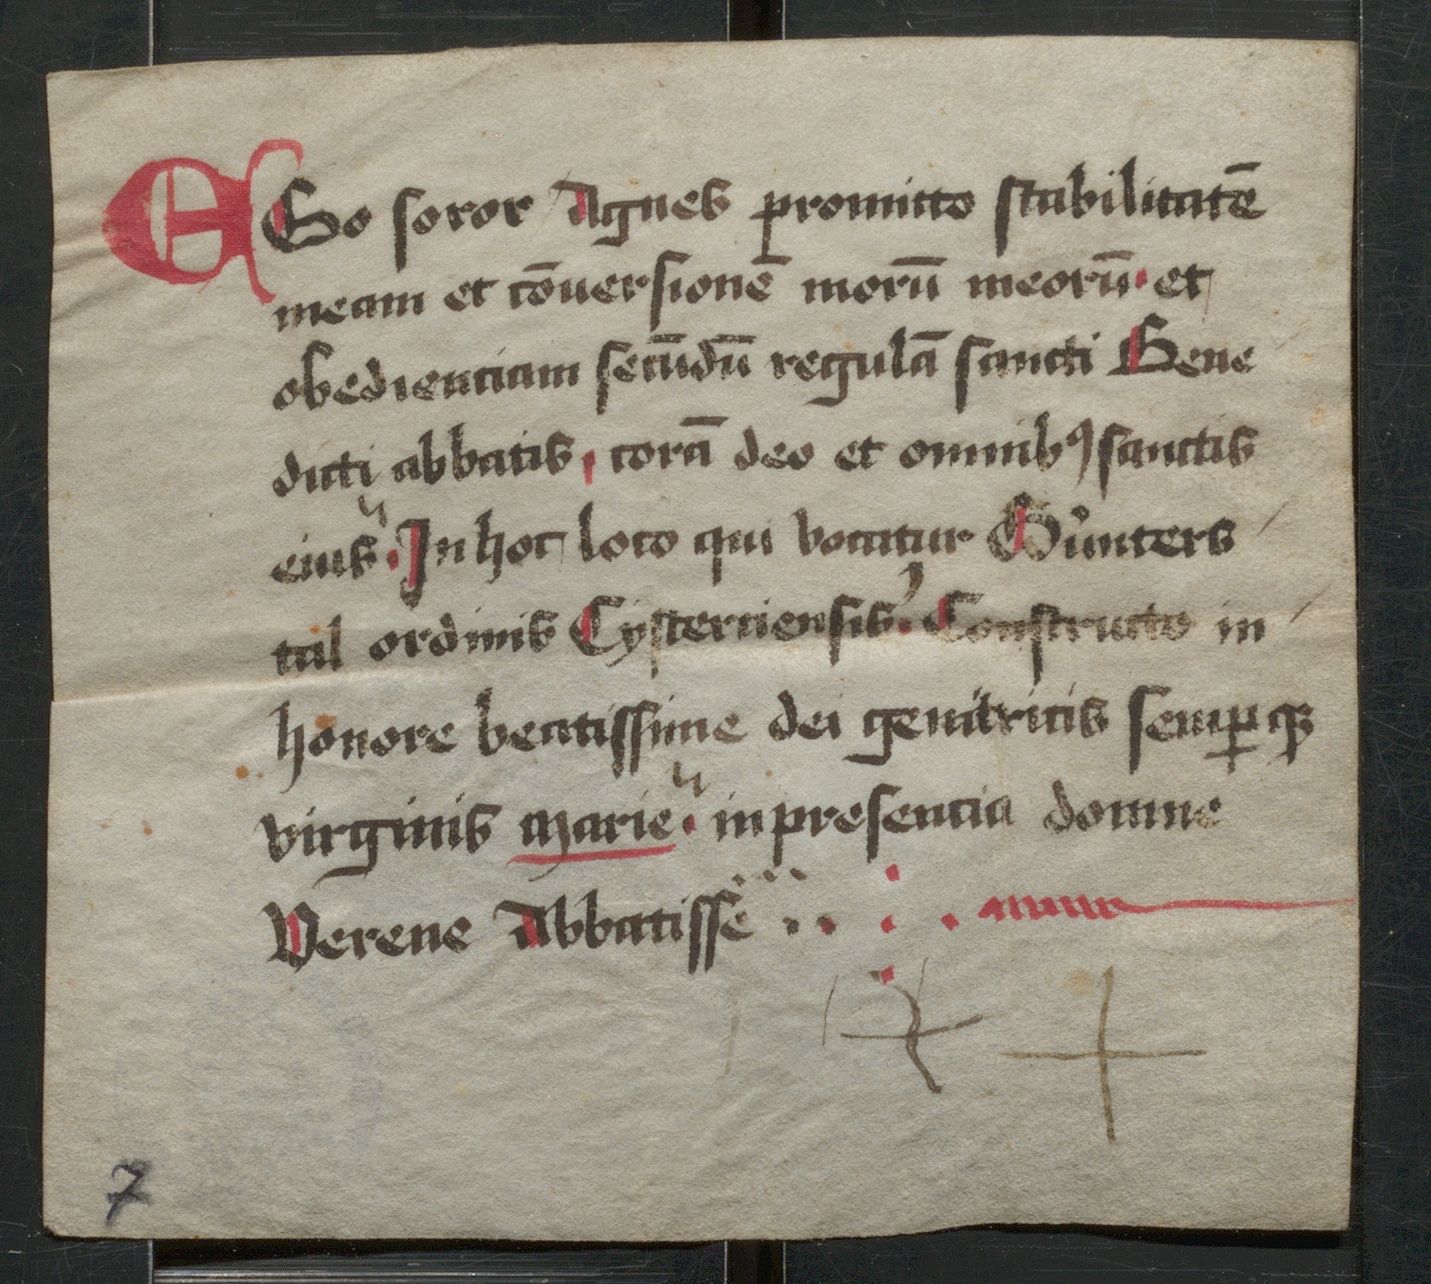 EGo soror Agnes promitto stabilitatē
meam et cōuersionē morū meorū · et
obedienciam secūdū regulā sancti Bene
dicti abbatis · corā deo et omnibꝰ sanctis
eius · In hoc loco qui vocatur Gůnters
tal ordinis Cysterciensis · Constructo in
honore beatissime dei genitricis semꝑqꝫ
virginis marie · in presencia domne
Verene Abbatissē
7